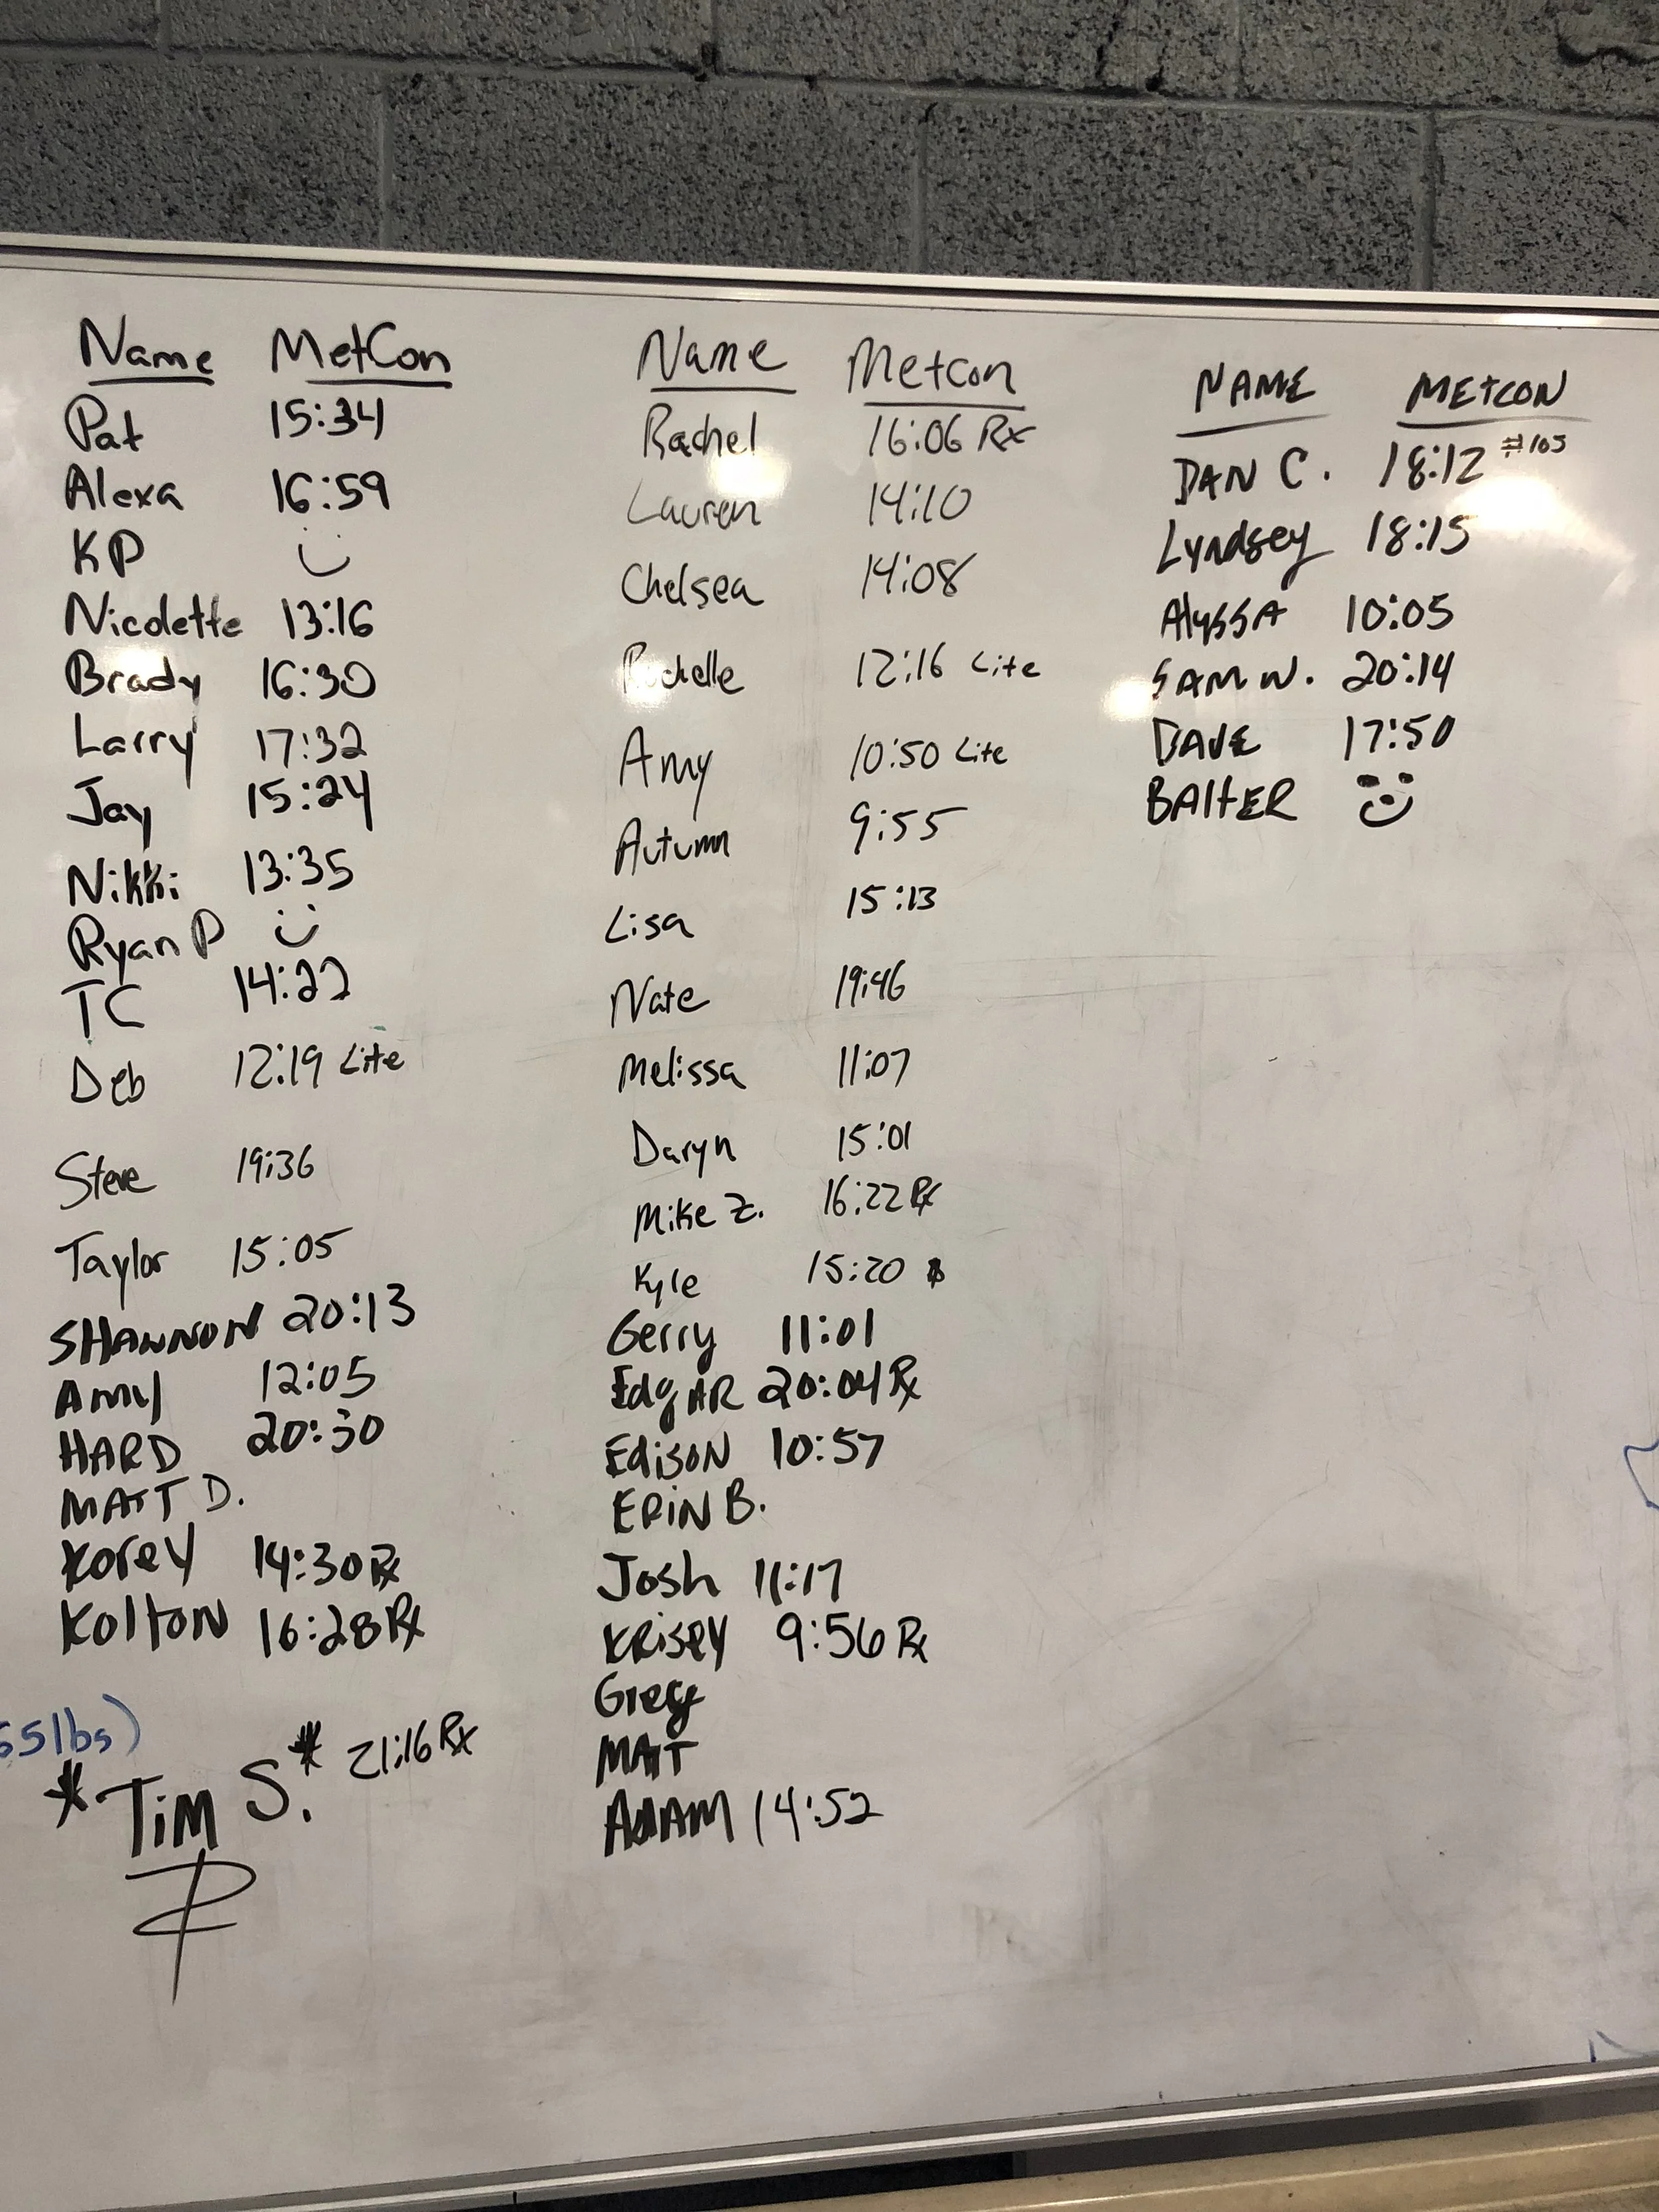 Name MetCon
Pat 15:34
Alexa 16:59
KP
Nicolette 13:16
Brady 16:30
Larry 17:32
Jay 15:24
Nikki 13:35
Ryan P
TC 14:22
Deb 12:19 Lite
Steve 19:36
Taylor 15:05
SHANNON 20:13
Amy 12:05
HARD 20:30
MATT D.
Korey 14:30 Rx
Kolton 16:28 Rx
55lbs)
*Tim S.* 21:16 Rx
Name Metcon
Rachel 16:06 Rx
Lauren 14:10
Chelsea 14:08
Rochelle 12:16 Lite
Amy 10:50 Lite
Autumn 9:55
Lisa 15:13
Nate 19:46
Melissa 11:07
Daryn 15:01
Mike Z. 16:22 Rx
Kyle 15:20
Gerry 11:01
EdgAR 20:04 Rx
EdisoN 10:57
ERiN B.
Josh 11:17
KRisey 9:56 Rx
Greg
MATT
ADAM 14:52
NAME METCON
DAN C. 18:12 #105
Lyndsey 18:15
AlySSA 10:05
SAM W. 20:14
DAVE 17:50
BAltER